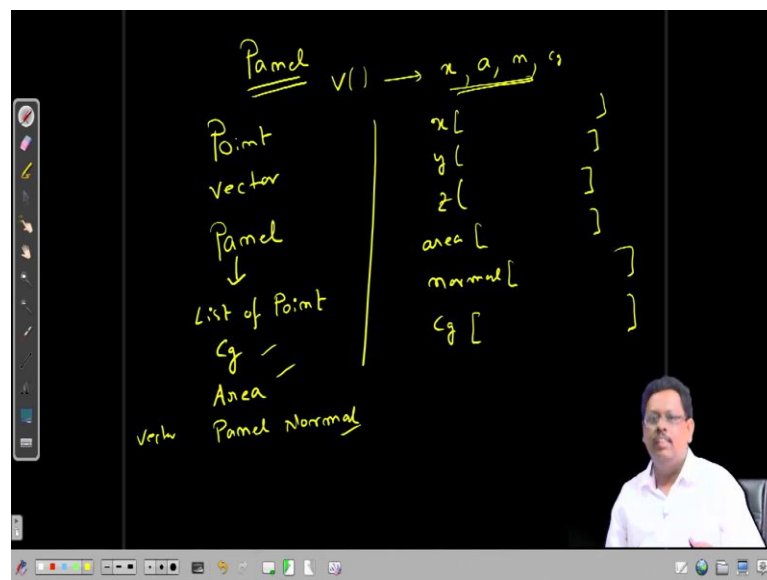 Panel V() → x, a, n, cg
Point
vector
Panel
↓
List of Point
Cg
Area
vector Panel Normal
x[ ]
y[ ]
z[ ]
area[ ]
normal[ ]
Cg[ ]